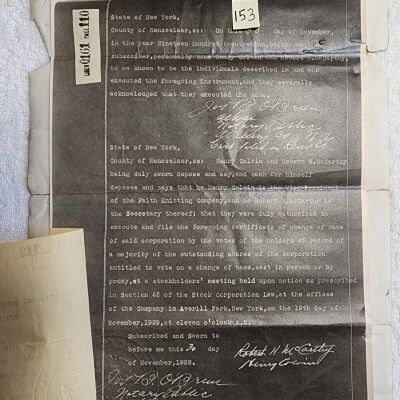 153
LIBER 0161 PAGE 110
State of New York,
County of Rensselaer,ss: On this 30 day of November,
in the year Nineteen Hundred twenty-nine, before me, the
subscriber, personally came Henry Colvin and Robert H. McCarthy,
to me known to be the individuals described in and who
executed the foregoing instrument, and they severally
acknowledged that they executed the same.
Notary Public
State of New York,
County of Rensselaer,ss: Henry Colvin and Robert H.McCarthy
being duly sworn depose and say, and each for himself
deposes and says that he Henry Colvin is the Vice President
of the Faith Knitting Company, and he Robert H. McCarthy is
the Secretary thereof; that they were duly authorized to
execute and file the foregoing certificate of change of name
of said corporation by the votes of the holders of record of
a majority of the outstanding shares of the corporation
entitled to vote on a change of name, cast in person or by
proxy, at a stockholders' meeting held upon notice as prescribed
in Section 45 of the Stock Corporation Law, at the offices
of the Company in Averill Park, New York, on the 19th day of
November, 1929, at eleven o'clock A.M.
Subscribed and Sworn to
before me this 30 day
of November, 1929.
Robert H McCarthy
Henry Colvin
Notary Public